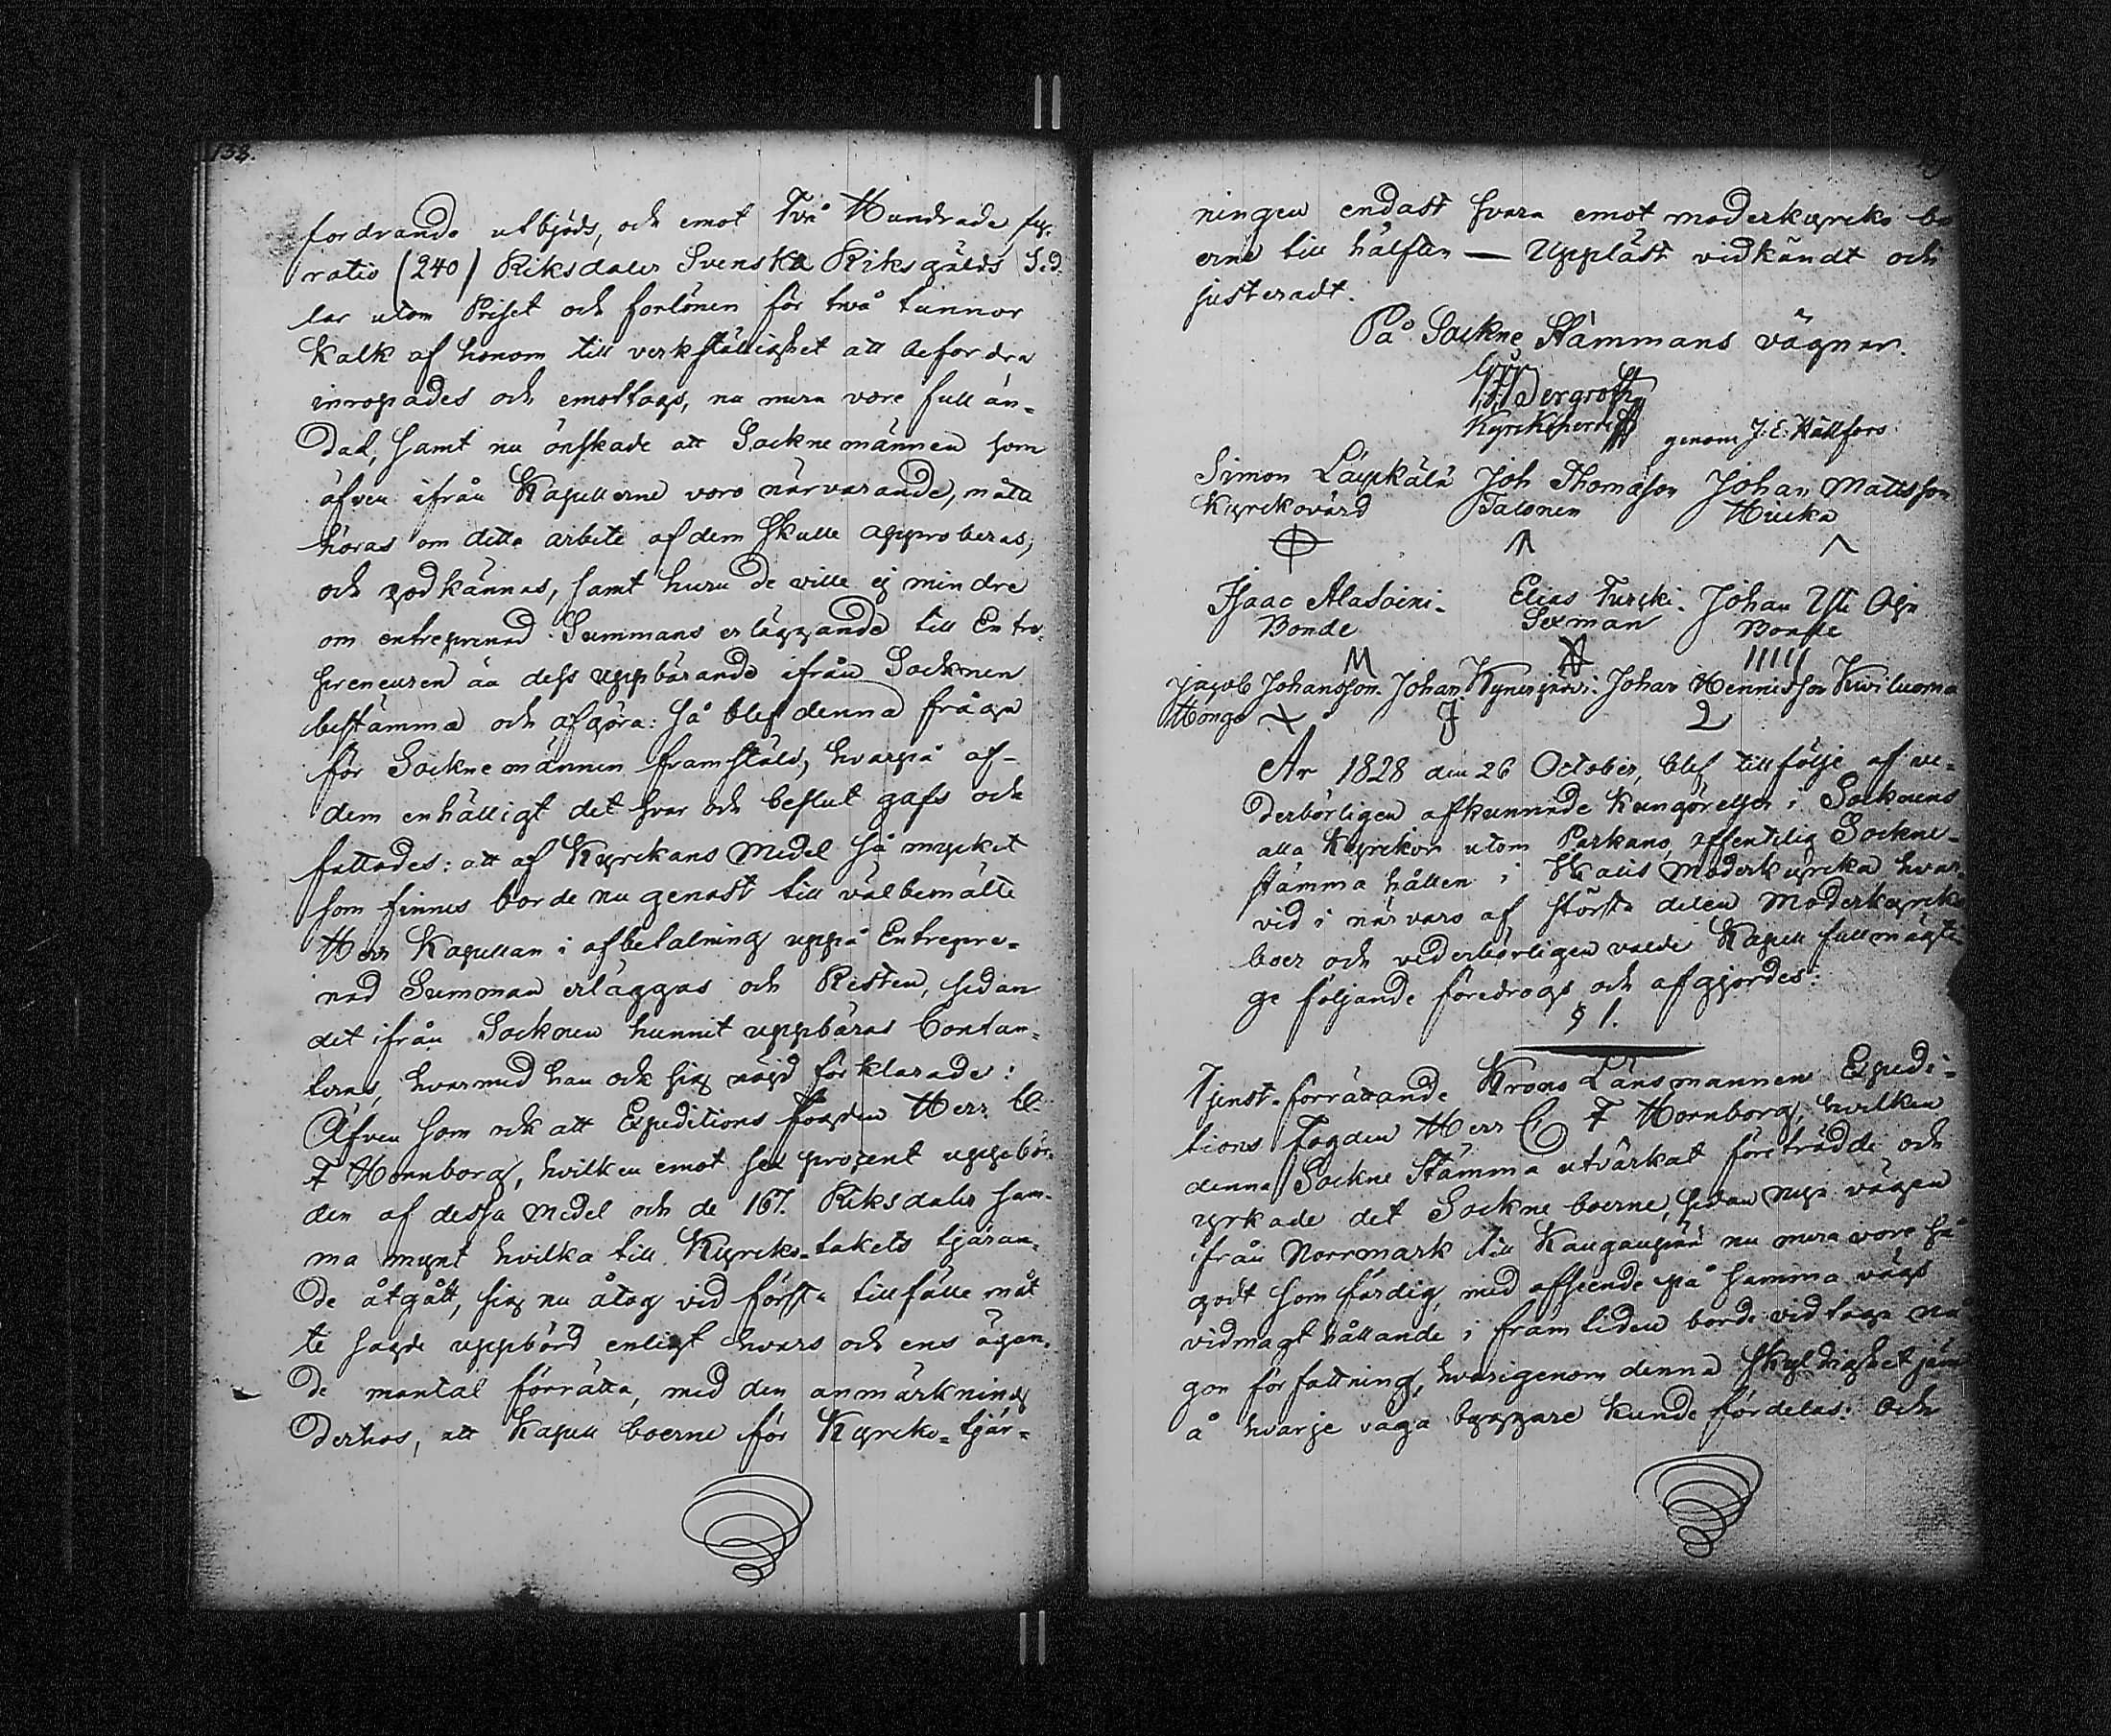 138.
fordrande utbjöds, och emot Två Hundrade fyr.
ratio (240) Riksdaler Svenska Riksgälds Sed.
lar utom Priset och forlönen för två tunnor
Kalk af honom till verkställighet att befordra
inropades och emottogs, nu mera vore full än-
dad, samt nu önskade att Sockne männen som
äfven ifrån Kapellerne voro närvarande, måtte
höras om detta arbete af dem skulle approberas,
och godkännas, samt huru de ville ej mindre
om entreprenad Summans erläggande till Entre-
preneuren än dess uppbärande ifrån Socknen
bestämma och afgöra: så blef denna fråga
för Sockne männen framstäld, hvarpå af-
dem enhälligt det svar och beslut gafs och
fattades: att af Kyrkans Medel så mycket
som finnes borde nu genast till välbemälte
Herr Kapellan i afbetalning uppå Entrepre-
nad Summan erläggas och Resten, sedan
det ifrån Socknen hunnit uppbäras Contan-
teras, hvarmed han ock sig nöjd förklarade:
Äfven som ock att Expeditions Fogden Herr C.
F Hornborg, hvilken emot sex procent uppebör-
den af dessa medel och de 167. Riksdaler sam-
ma mynt hvilka till Kyrko-takets tjäran-
de åtgått, sig nu åtog vid första tillfälle måt
te sagde uppbörd enligt hvars och ens ägan-
de mantal förrätta, med den anmärkning
derhos, att Kapell boerne för Kyrko-tjär-
ningen endast svara emot moderkyrko bo
erne till hälften — Uppläst vidkändt och
justeradt.
På Sockne Stämmans vägnar.
Kyrkoherde
genom J: E: Hällfors
Simon Läykälä Joh Thomasson Johan Mattsson
Kyrkovärd Talonen Hucka
Isaac Alasoini. Elias Turcki. Johan Yli Oja
Bonde Sexman Bonde
Jacob Johansson. Johan Kynesjärvi. Johan Hennisson Kiviluoma
Hongo
År 1828 den 26 October, blef till följe af ve-
derbörligen afkunnade Kungörelser i Socknens
alla Kyrkor utom Parkano, offentelig Sockne-
stämma hållen i Moderkyrka hvar-
vid i närvaro af största delen Moderkyrko
boer och vederbörligen valde Kapell fullmägti-
ge följande föredrogs och afgjordes:
§ 1.
Tjenst-förrättande Krono Länsmannen Expedi-
tions Fogden Herr C F Hornborg, hvilken
denna Sockne Stämma utvärkat företrädde och
yrkade det Sockne boerne, sedan nya vägen
ifrån Norrmark till Kangaspää nu mera vore så
godt som färdig, med afseende på samma vägs
vidmagt hållande i framtiden borde vidtaga nå
gon författning, hvarigenom denna skyldighet jäm
å hvarje väga byggare kunde fördelas: Och